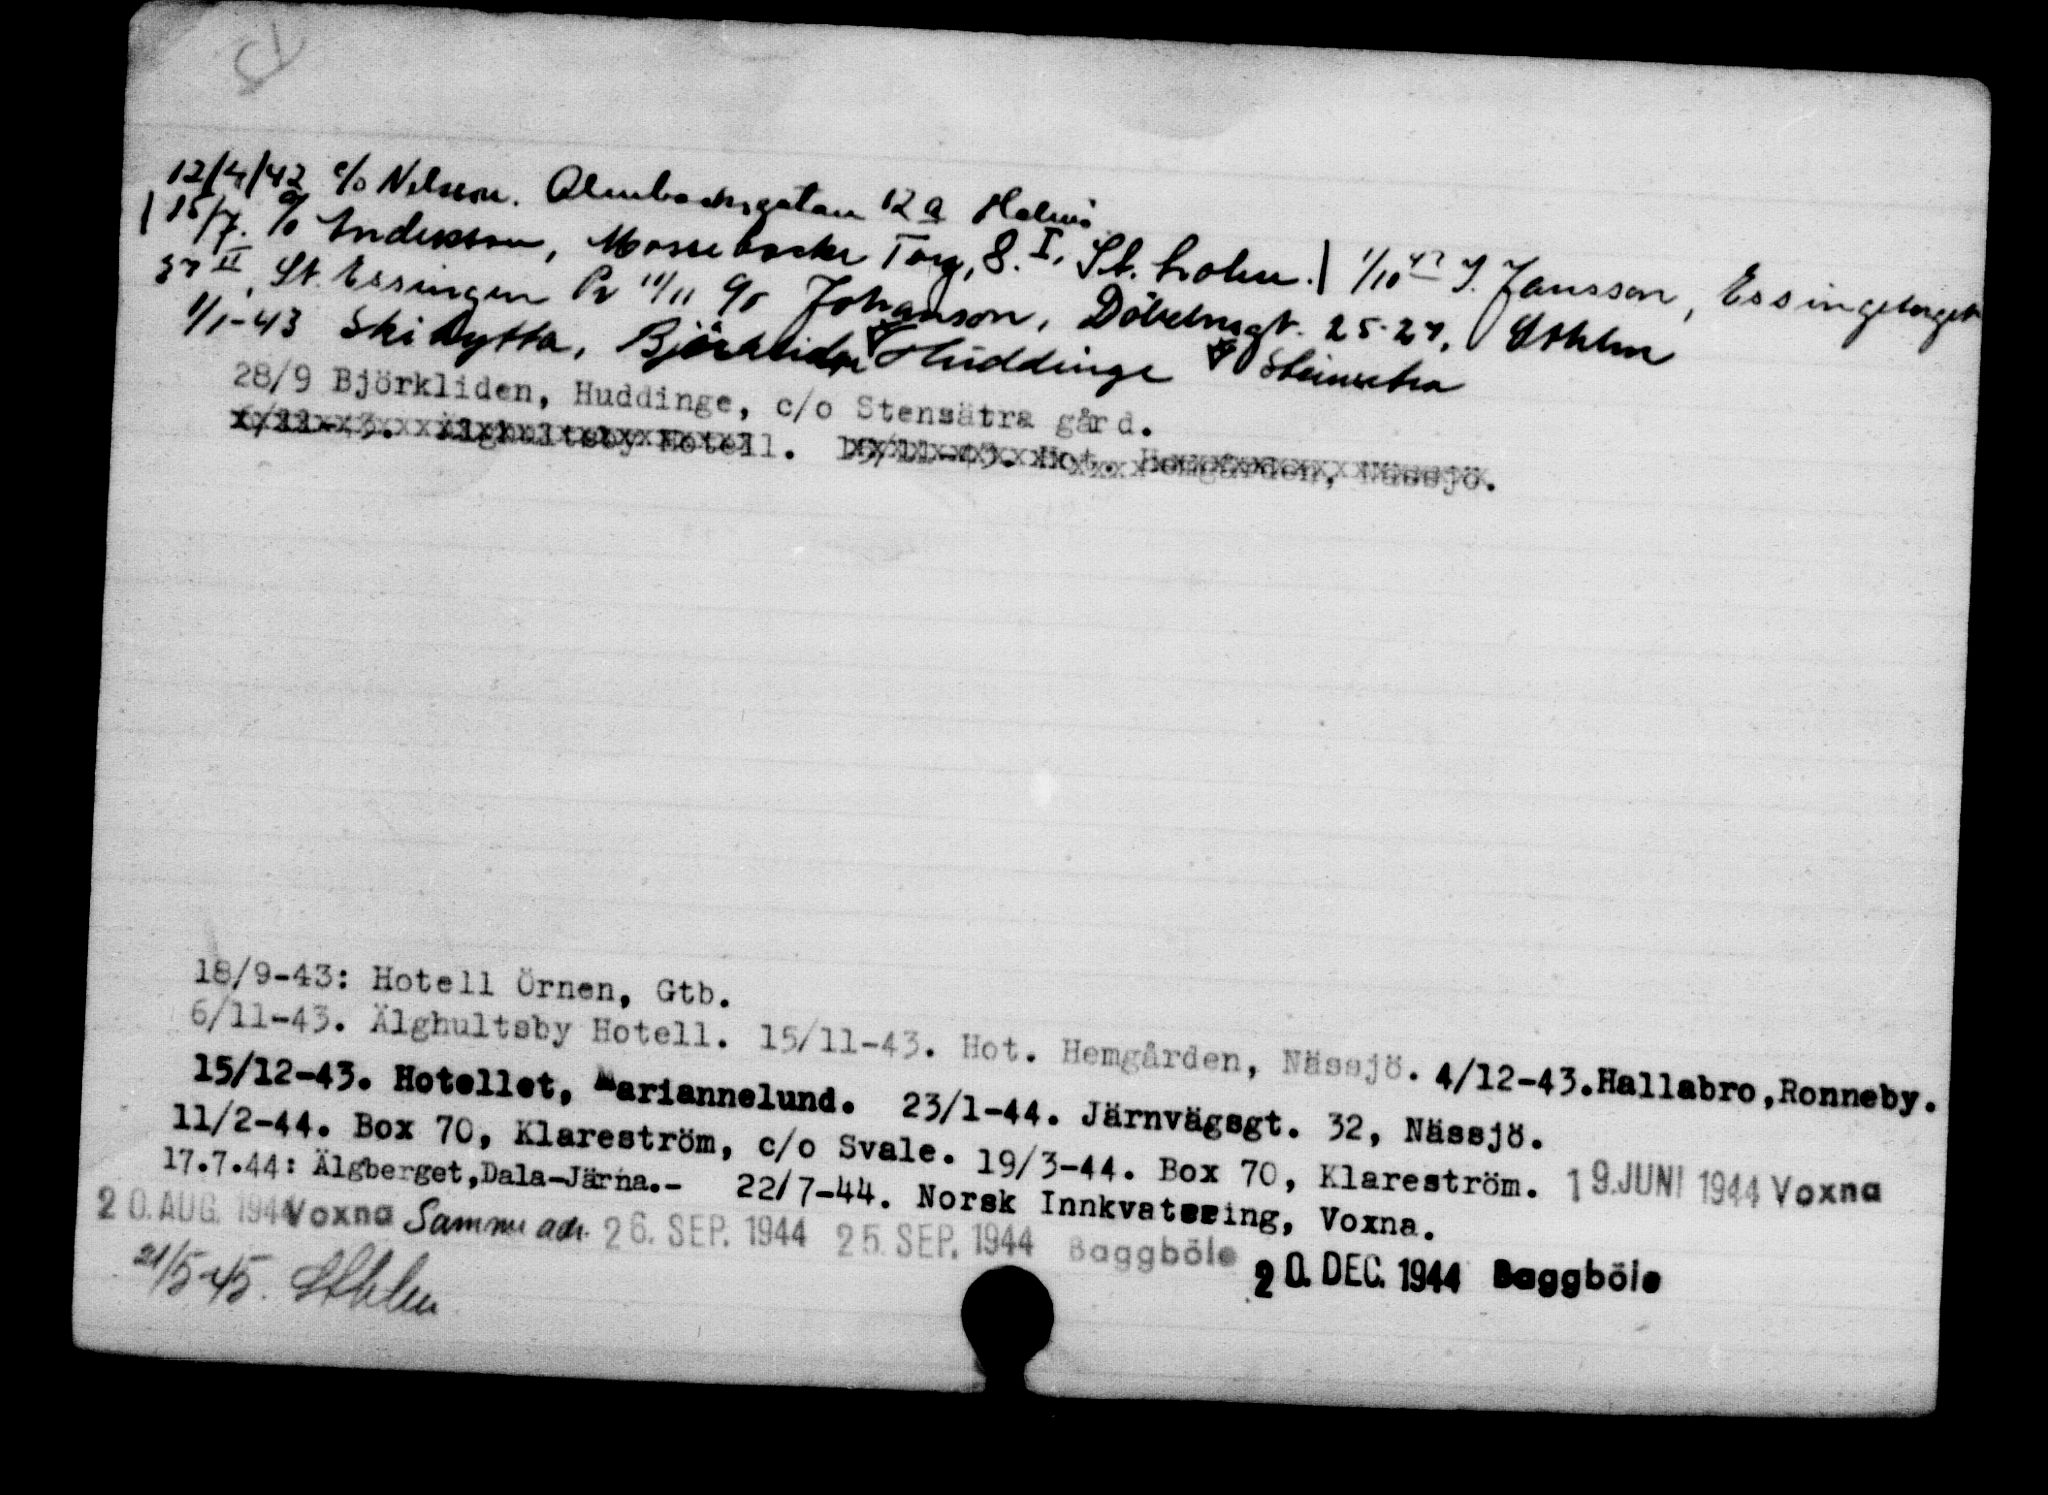 12/4/42 c/o Nilsson. Almbacksgatan 12 a Malmö
15/7. c/o Andersson, Mossebacke Torg, 8. I, St.holm. | 1/10 42 J. Jansson, Essingetorget
37 II, St. Essingen Pr 11/11 c/o Johanson, Döbelnsgt. 25-27, Sthlm
1/1-43 Ski hytta, Björkliden Huddinge Steinsetra
28/9 Björkliden, Huddinge, c/o Stensätra gård.
6/11-43. Älghultsby Hotell. 15/11-43. Hot. Hemgården, Nässjö.
18/9-43: Hotell Örnen, Gtb.
6/11-43. Älghultsby Hotell. 15/11-43. Hot. Hemgården, Nässjö. 4/12-43.Hallabro,Ronneby.
15/12-43. Hotellet, Mariannelund. 23/1-44. Järnvägsgt. 32, Nässjö.
11/2-44. Box 70, Klareström, c/o Svale. 19/3-44. Box 70, Klareström. 19.JUNI 1944 Voxna
17.7.44: Älgberget,Dala-Järna.- 22/7-44. Norsk Innkvatering, Voxna.
20.AUG. 1944 Voxna Samme adr. 26. SEP. 1944 25. SEP. 1944 Baggböle 20. DEC. 1944 Baggböle
21/5-45. Sthlm